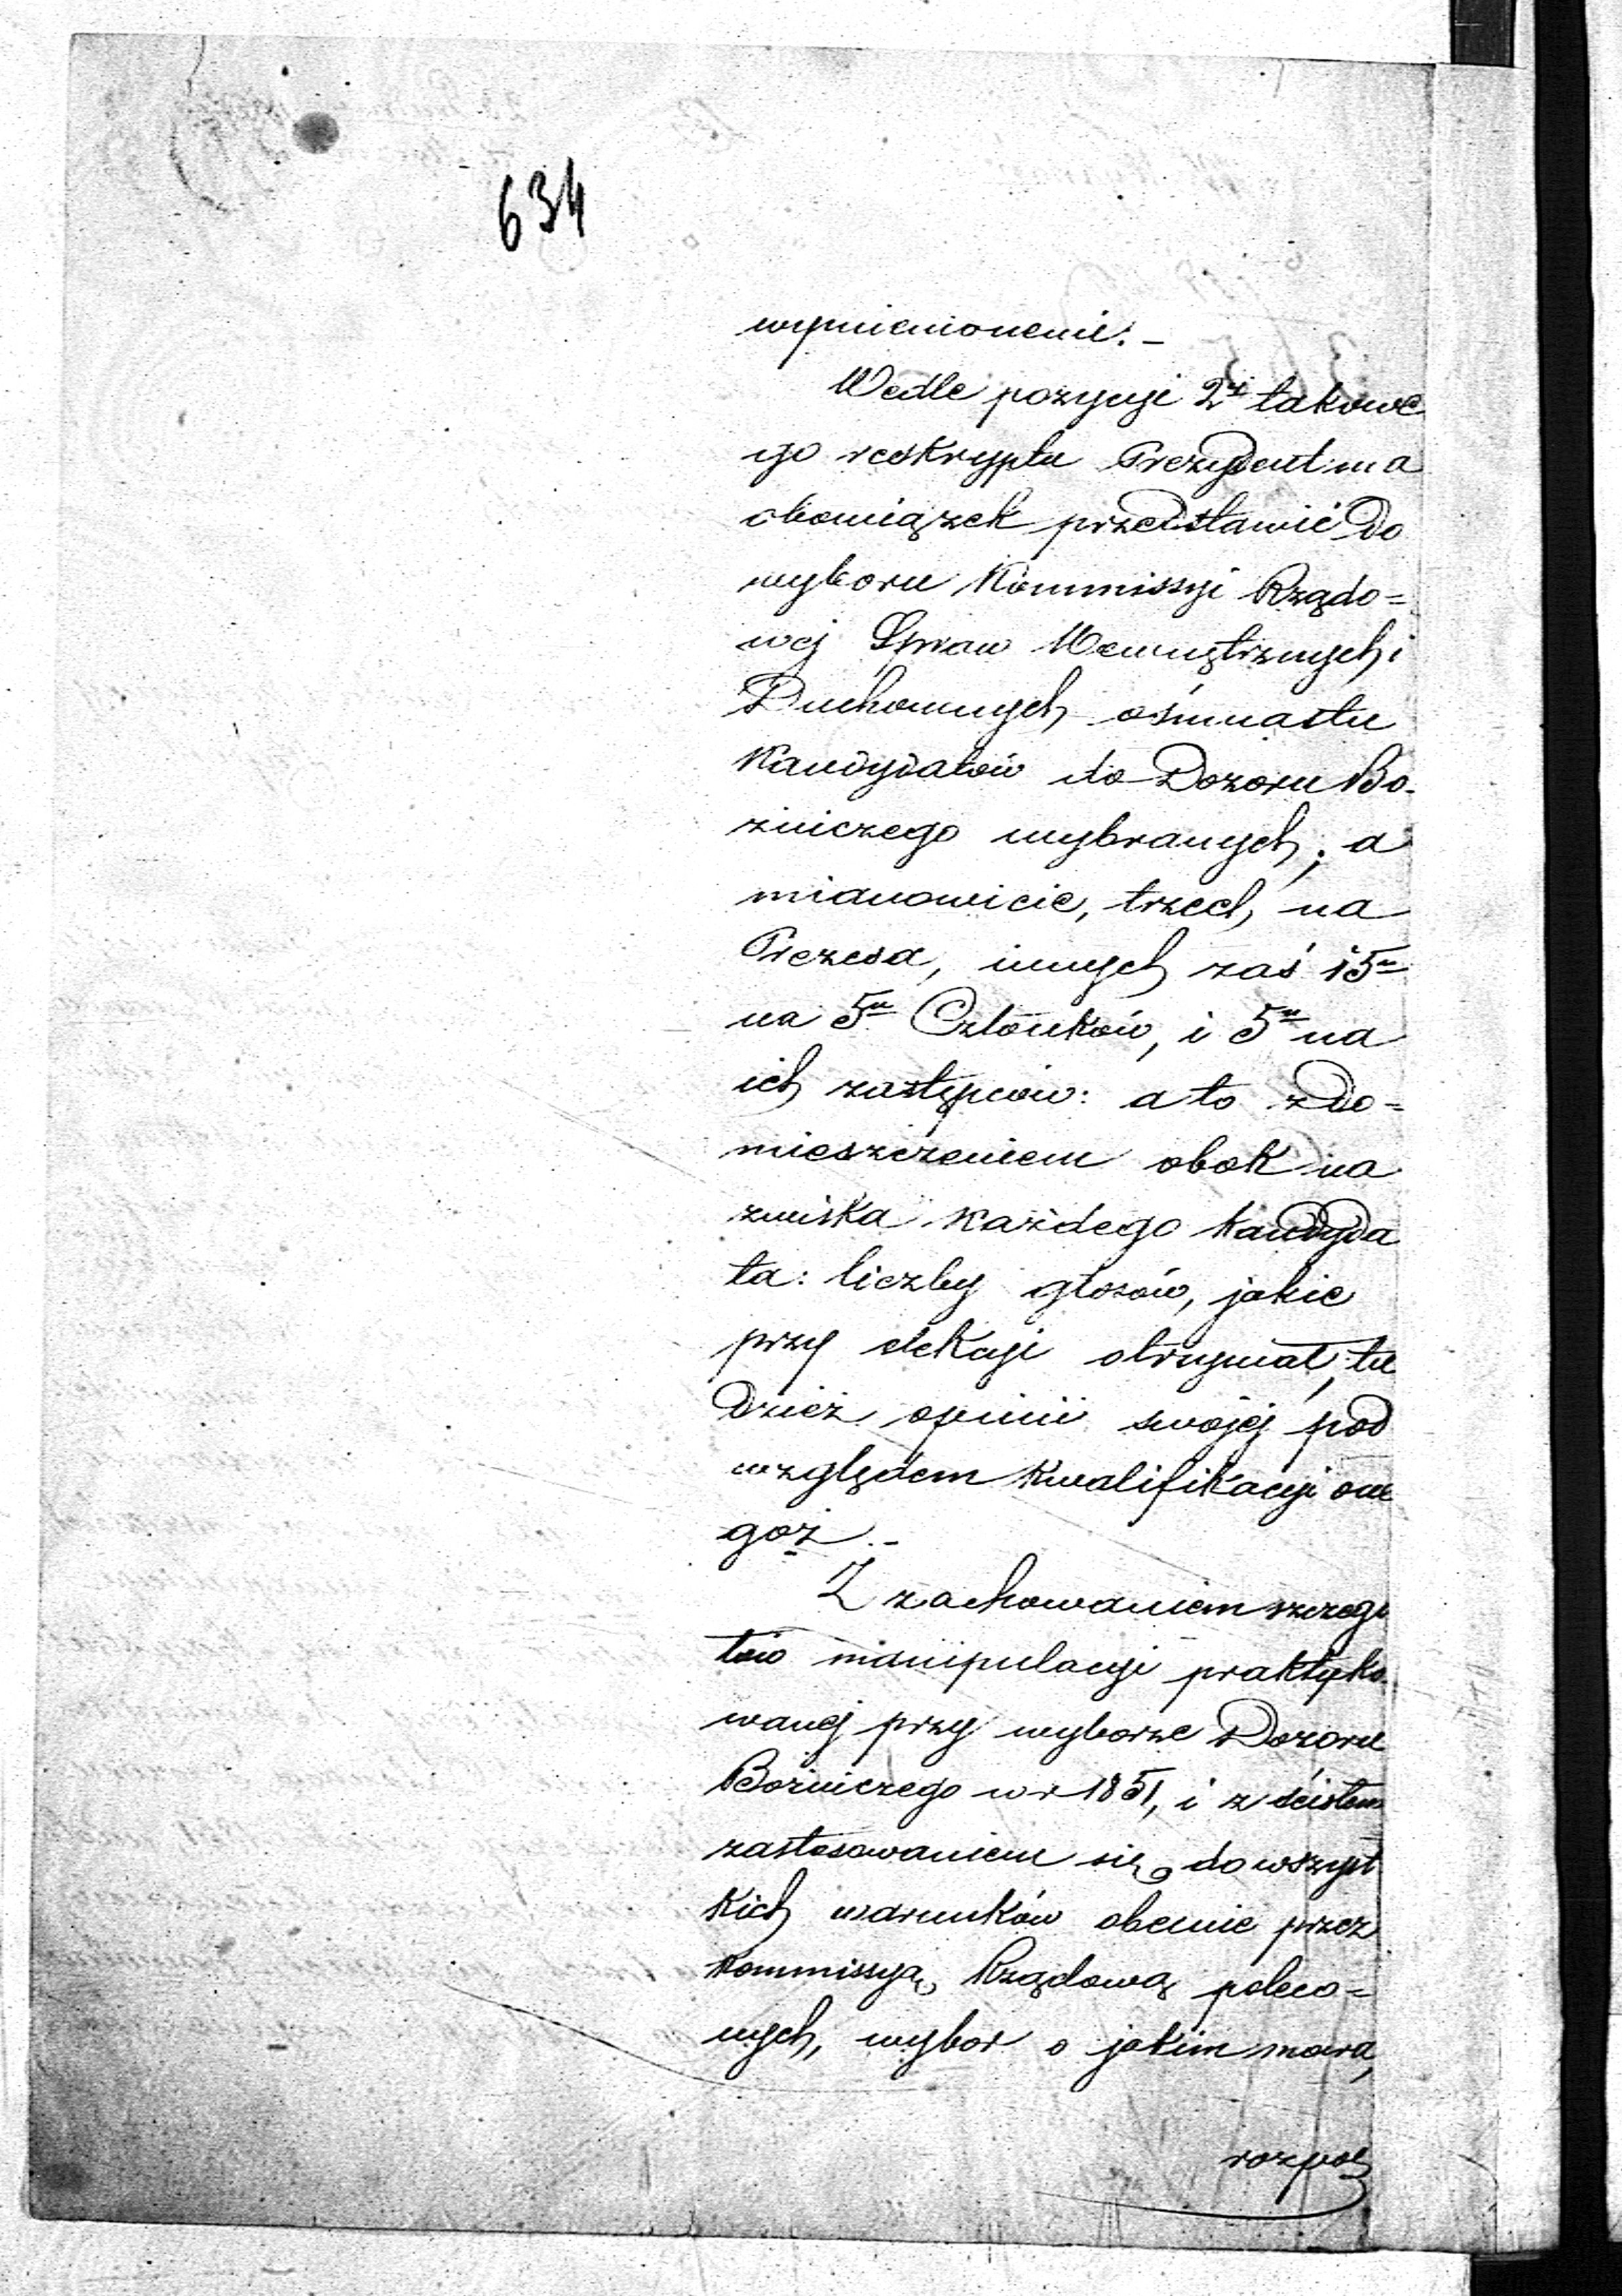 634
wymienionemi. –
Wedle pozycyi 2ej takowe
go reskryptu Prezydent ma
obowiązek przedstawić do
wyboru Kommissyi Rządo=
wej Spraw Wewnętrznych i
Duchownych ośmnastu
Kandydatów do Dozoru Bo-
źniczego wybranych; a
mianowicie, trzech na
Prezesa, innych zaś 15u
na 5u Członków, i 5u na
ich zastępców: a to z do=
mieszczeniem obok na
zwiska każdego kandyda
ta: liczby głosów, jakie
przy elekcyi otrzymał, tu
dzież opinii swojéj pod
względem kwalifikacyi one
goż. –
Z zachowaniem szczegó
łów manipulacyi praktyko-
wanéj przy wyborze Dozoru
Bożniczego w r 1851, i z ścisłem
zastosowaniem się do wszyst
kich warunków obecnie przez
Kommissyą Rządową poleco=
nych, wybor o jakim mowa,
rozpo